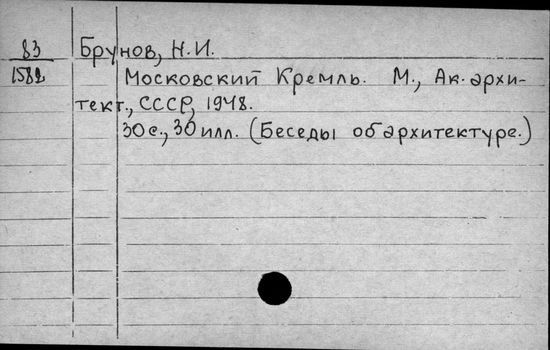 83 Брунов, Н.И.
1582 Московский Кремль. М., Ак. архи-
тект., СССР, 1948.
30 с., 30 илл. (Беседы об архитектуре.)